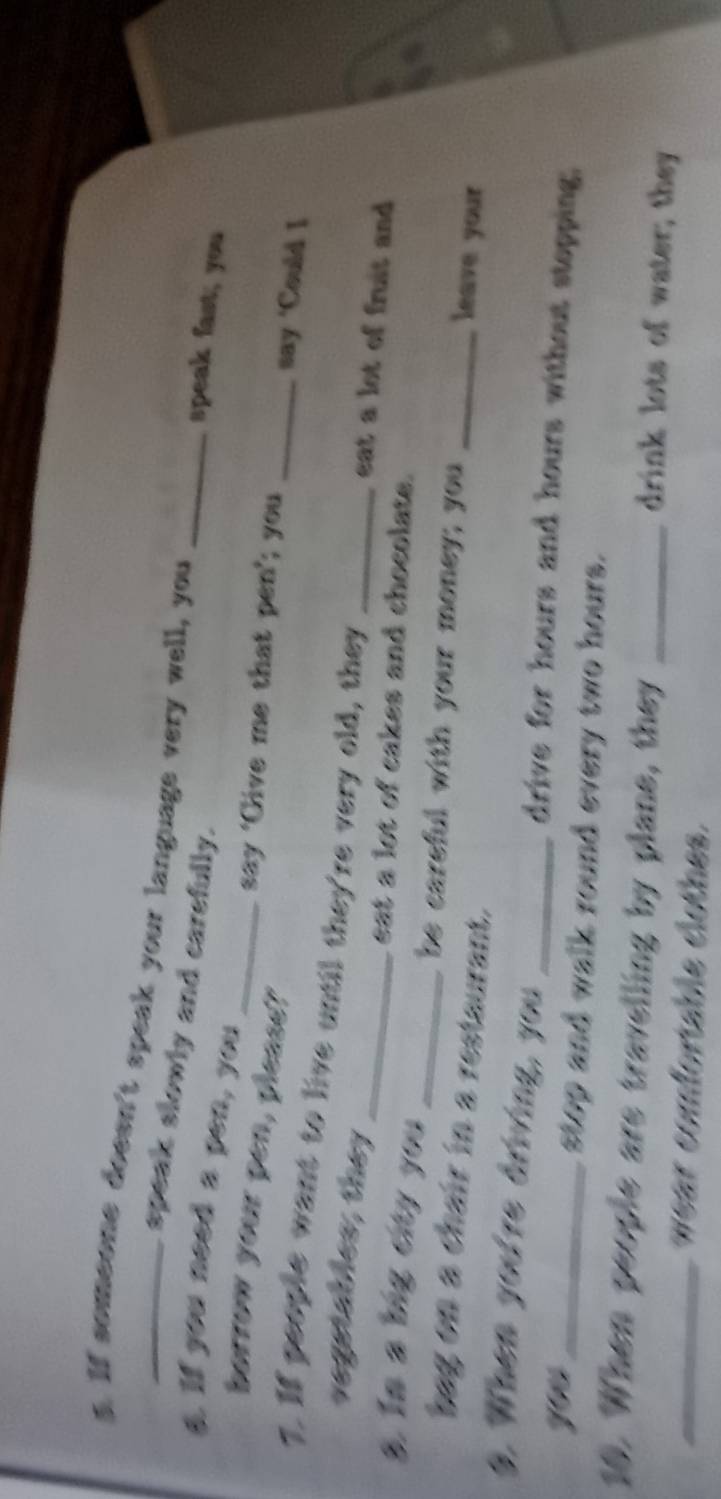 5. If someone doesn't speak your language very well, you ______ speak fast, you
______ speak slowly and carefully.
6. If you need a pen, you ______ say 'Give me that pen'; you ______ say 'Could I
borrow your pen, please?'
7. If people want to live until they're very old, they ______ eat a lot of fruit and
vegetables; they ______ eat a lot of cakes and chocolate.
8. In a big city you ______ be careful with your money; you ______ leave your
bag on a chair in a restaurant.
9. When you're driving, you ______ drive for hours and hours without stopping,
you ______ stop and walk round every two hours.
10. When people are travelling by plane, they ______ drink lots of water; they
______ wear comfortable clothes.